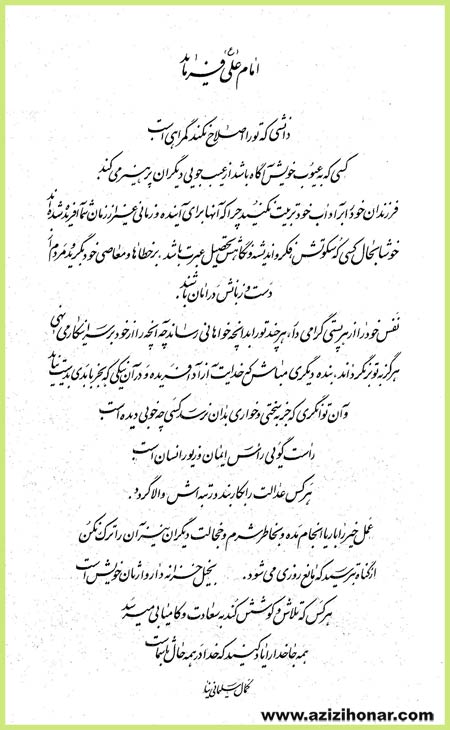 امام علی (ع) میفرماید
دانشی که تو را اصلاح نکند گمراهی است
کسی که به عیوب خویش آگاه باشد از عیب جویی دیگران پرهیز می کند
فرزندان خود را به آداب خود تربیت نکنید چرا که آنها برای آینده و زمانی غیر از زمان شما آفریده شده اند
خوشا بحال کسی که سکوتش فکر و اندیشه و نگاهش تحصیل عبرت باشد. بر خطاها و معاصی خود بگرید و مردم از
دست و زبانش در امان باشند.
نفس خود را از هر پستی گرامی دار، هر چند تو را بدانچه خواهانی رساند چه آنچه را از خود بر سر این کار می نهی
هرگز به تو برنگرداند، بنده دیگری مباش که خدایت آزاد آفریده و در آن نیکی که جز با بدی بدست نیاید
و آن توانگری که جز به سختی و خواری بدان نرسد کسی چه خوبی دیده است
راست گویی رأس ایمان و زیور انسان است
هر کس عدالت را بکار بندد رتبه اش والا گردد.
عمل خیر را با ریا انجام مده و بخاطر شرم و خجالت دیگران نیز آن را ترک نکن
از گناه بترسید که مانع روزی می شود. بخیل خزانه دار وارثان خویش است
هر کس که تلاش و کوشش کند به سعادت و کامیابی میرسد
همه جا خدا را یاد کنید که خدا در همه حال با شماست
کمال سلمانی نیا
www.azizihonar.com